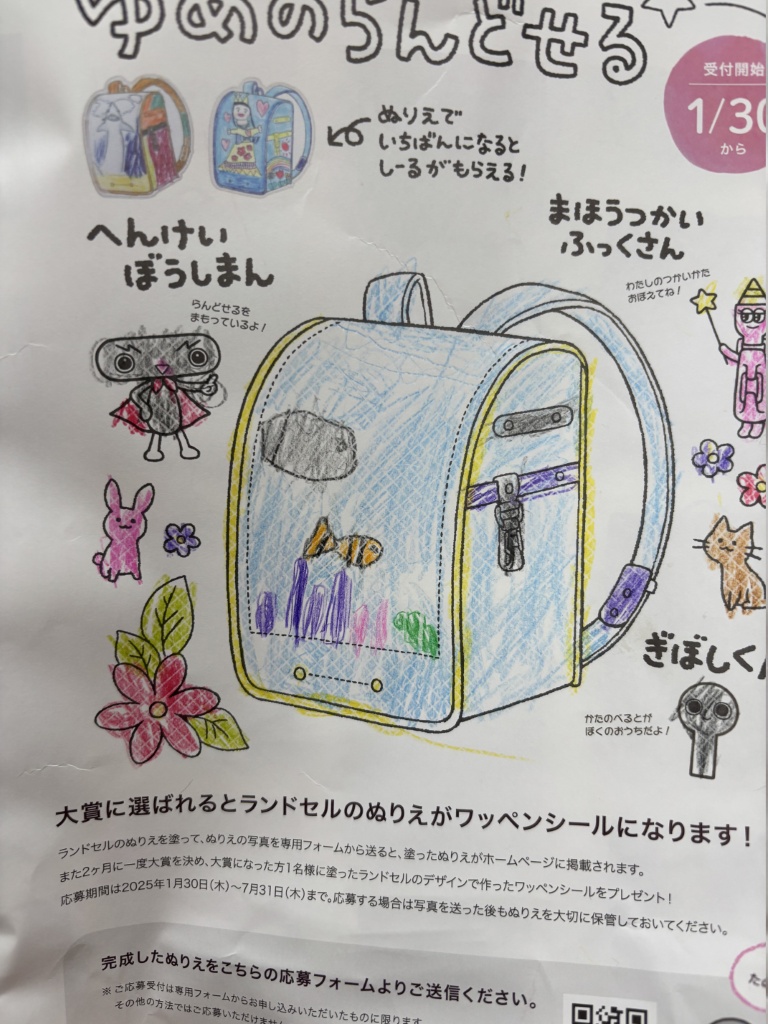 ゆめのらんどせる
受付開始
1/30
から
ぬりえで
いちばんになると
しーるがもらえる!
へんけい
ぼうしまん
らんどせるを
まもっているよ!
まほうつかい
ふっくさん
わたしのつかいかた
おぼえてね!
ぎぼしくん
かたのべるとが
ぼくのおうちだよ!
大賞に選ばれるとランドセルのぬりえがワッペンシールになります!
ランドセルのぬりえを塗って、ぬりえの写真を専用フォームから送ると、塗ったぬりえがホームページに掲載されます。
また2ヶ月に一度大賞を決め、大賞になった方1名様に塗ったランドセルのデザインで作ったワッペンシールをプレゼント!
応募期間は2025年1月30日(木)〜7月31日(木)まで。応募する場合は写真を送った後もぬりえを大切に保管しておいてください。
完成したぬりえをこちらの応募フォームよりご送信ください。
※ご応募受付は専用フォームからお申し込みいただいたものに限ります
その他の方法ではご応募いただけま